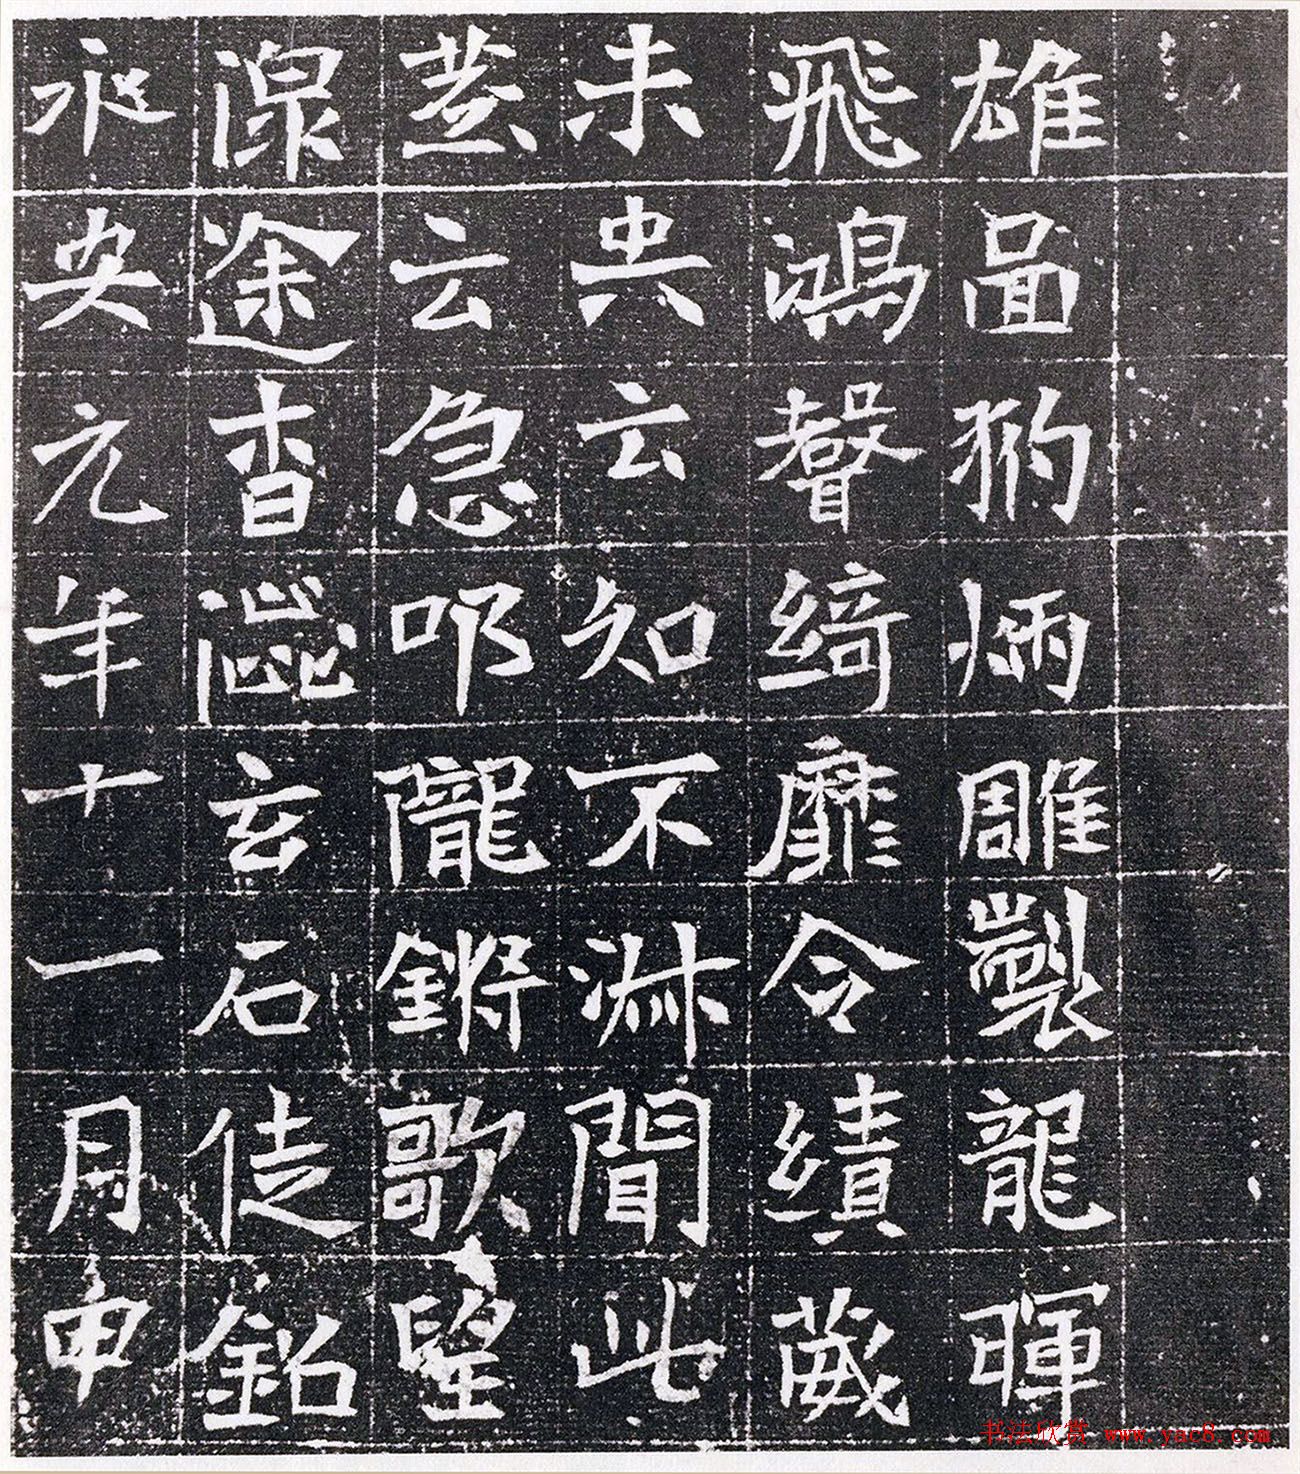 雄啚豹炳雕製龍暉
飛鴻聲綺靡令績葳
未央云知不淋聞此
云急叩隴鏘歌望
湶途杳玄石徒銘
永安元年十一月申
书法欣赏 www.yac8.com